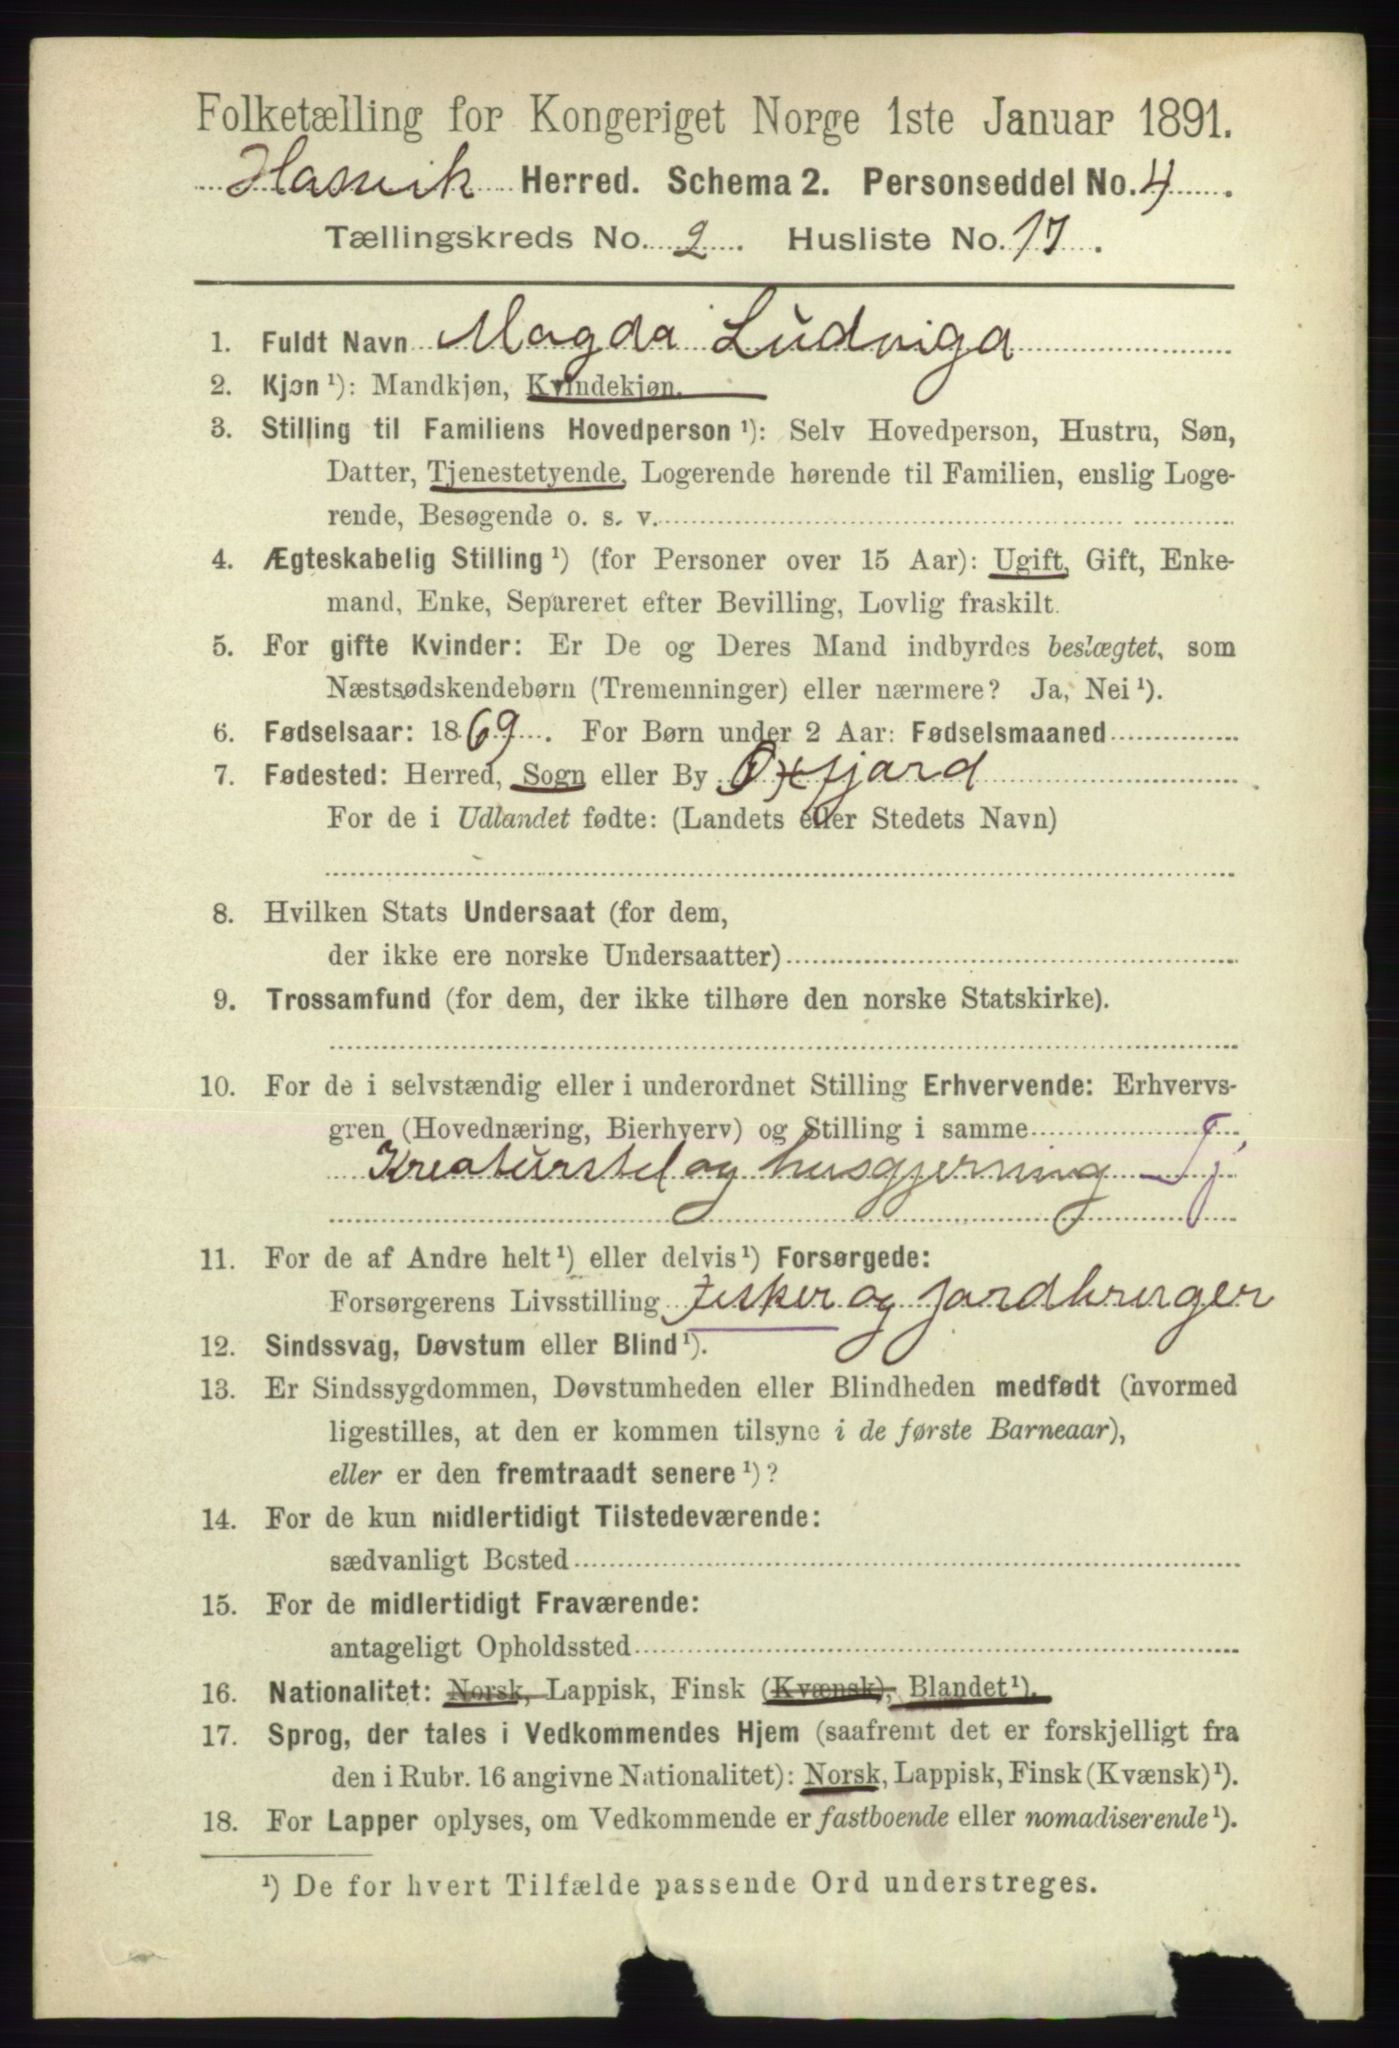 Folketælling for Kongeriget Norge 1ste Januar 1891.
Hasvik Herred. Schema 2. Personseddel No. 4.
Tællingskreds No. 2. Husliste No. 17.
1. Fuldt Navn Magda Ludviga
2. Kjøn ¹): Mandkjøn, Kvindekjøn.
3. Stilling til Familiens Hovedperson ¹): Selv Hovedperson, Hustru, Søn,
Datter, Tjenestetyende, Logerende hørende til Familien, enslig Loge-
rende, Besøgende o. s. v.
4. Ægteskabelig Stilling ¹) (for Personer over 15 Aar): Ugift, Gift, Enke-
mand, Enke, Separeret efter Bevilling, Lovlig fraskilt.
5. For gifte Kvinder: Er De og Deres Mand indbyrdes beslægtet, som
Næstsødskendebørn (Tremenninger) eller nærmere? Ja, Nei ¹).
6. Fødselsaar: 1869. For Børn under 2 Aar: Fødselsmaaned
7. Fødested: Herred, Sogn eller By Oxfjord
For de i Udlandet fødte: (Landets eller Stedets Navn)
8. Hvilken Stats Undersaat (for dem,
der ikke ere norske Undersaatter)
9. Trossamfund (for dem, der ikke tilhøre den norske Statskirke).
10. For de i selvstændig eller i underordnet Stilling Erhvervende: Erhvervs-
gren (Hovednæring, Bierhverv) og Stilling i samme
Kreaturstel og husgjerning Tj.
11. For de af Andre helt ¹) eller delvis ¹) Forsørgede:
Forsørgerens Livsstilling Fisker og jordbruger
12. Sindssvag, Døvstum eller Blind ¹).
13. Er Sindssygdommen, Døvstumheden eller Blindheden medfødt (hvormed
ligestilles, at den er kommen tilsyne i de første Barneaar),
eller er den fremtraadt senere ¹)?
14. For de kun midlertidigt Tilstedeværende:
sædvanligt Bosted
15. For de midlertidigt Fraværende:
antageligt Opholdssted
16. Nationalitet: Norsk, Lappisk, Finsk (Kvænsk), Blandet ¹).
17. Sprog, der tales i Vedkommendes Hjem (saafremt det er forskjelligt fra
den i Rubr. 16 angivne Nationalitet): Norsk, Lappisk, Finsk (Kvænsk) ¹).
18. For Lapper oplyses, om Vedkommende er fastboende eller nomadiserende ¹).
¹) De for hvert Tilfælde passende Ord understreges.